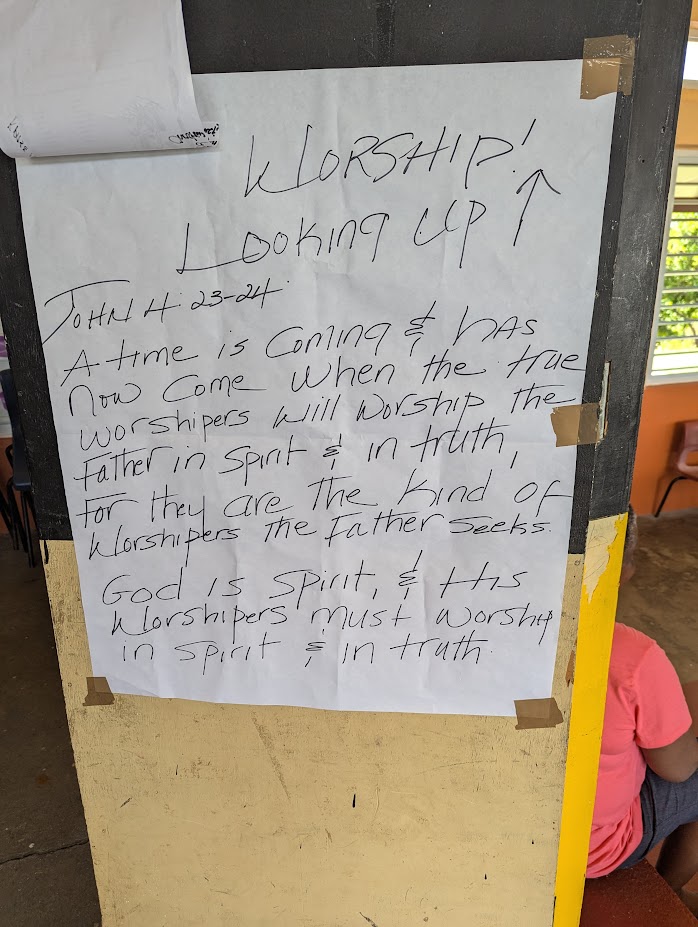 WORSHIP!
Looking Up ↑
JOHN 4: 23-24
A time is coming & has
now come when the true
worshipers will worship the
Father in Spirit & in truth,
For they are the kind of
Worshipers the Father seeks.
God is spirit, & His
Worshipers must worship
in spirit & in truth.